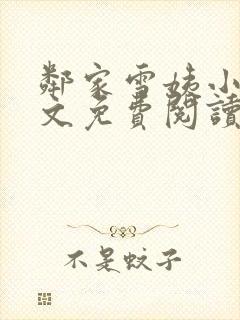 鄰家雪姨小
文免費閱讀
不是蚊子